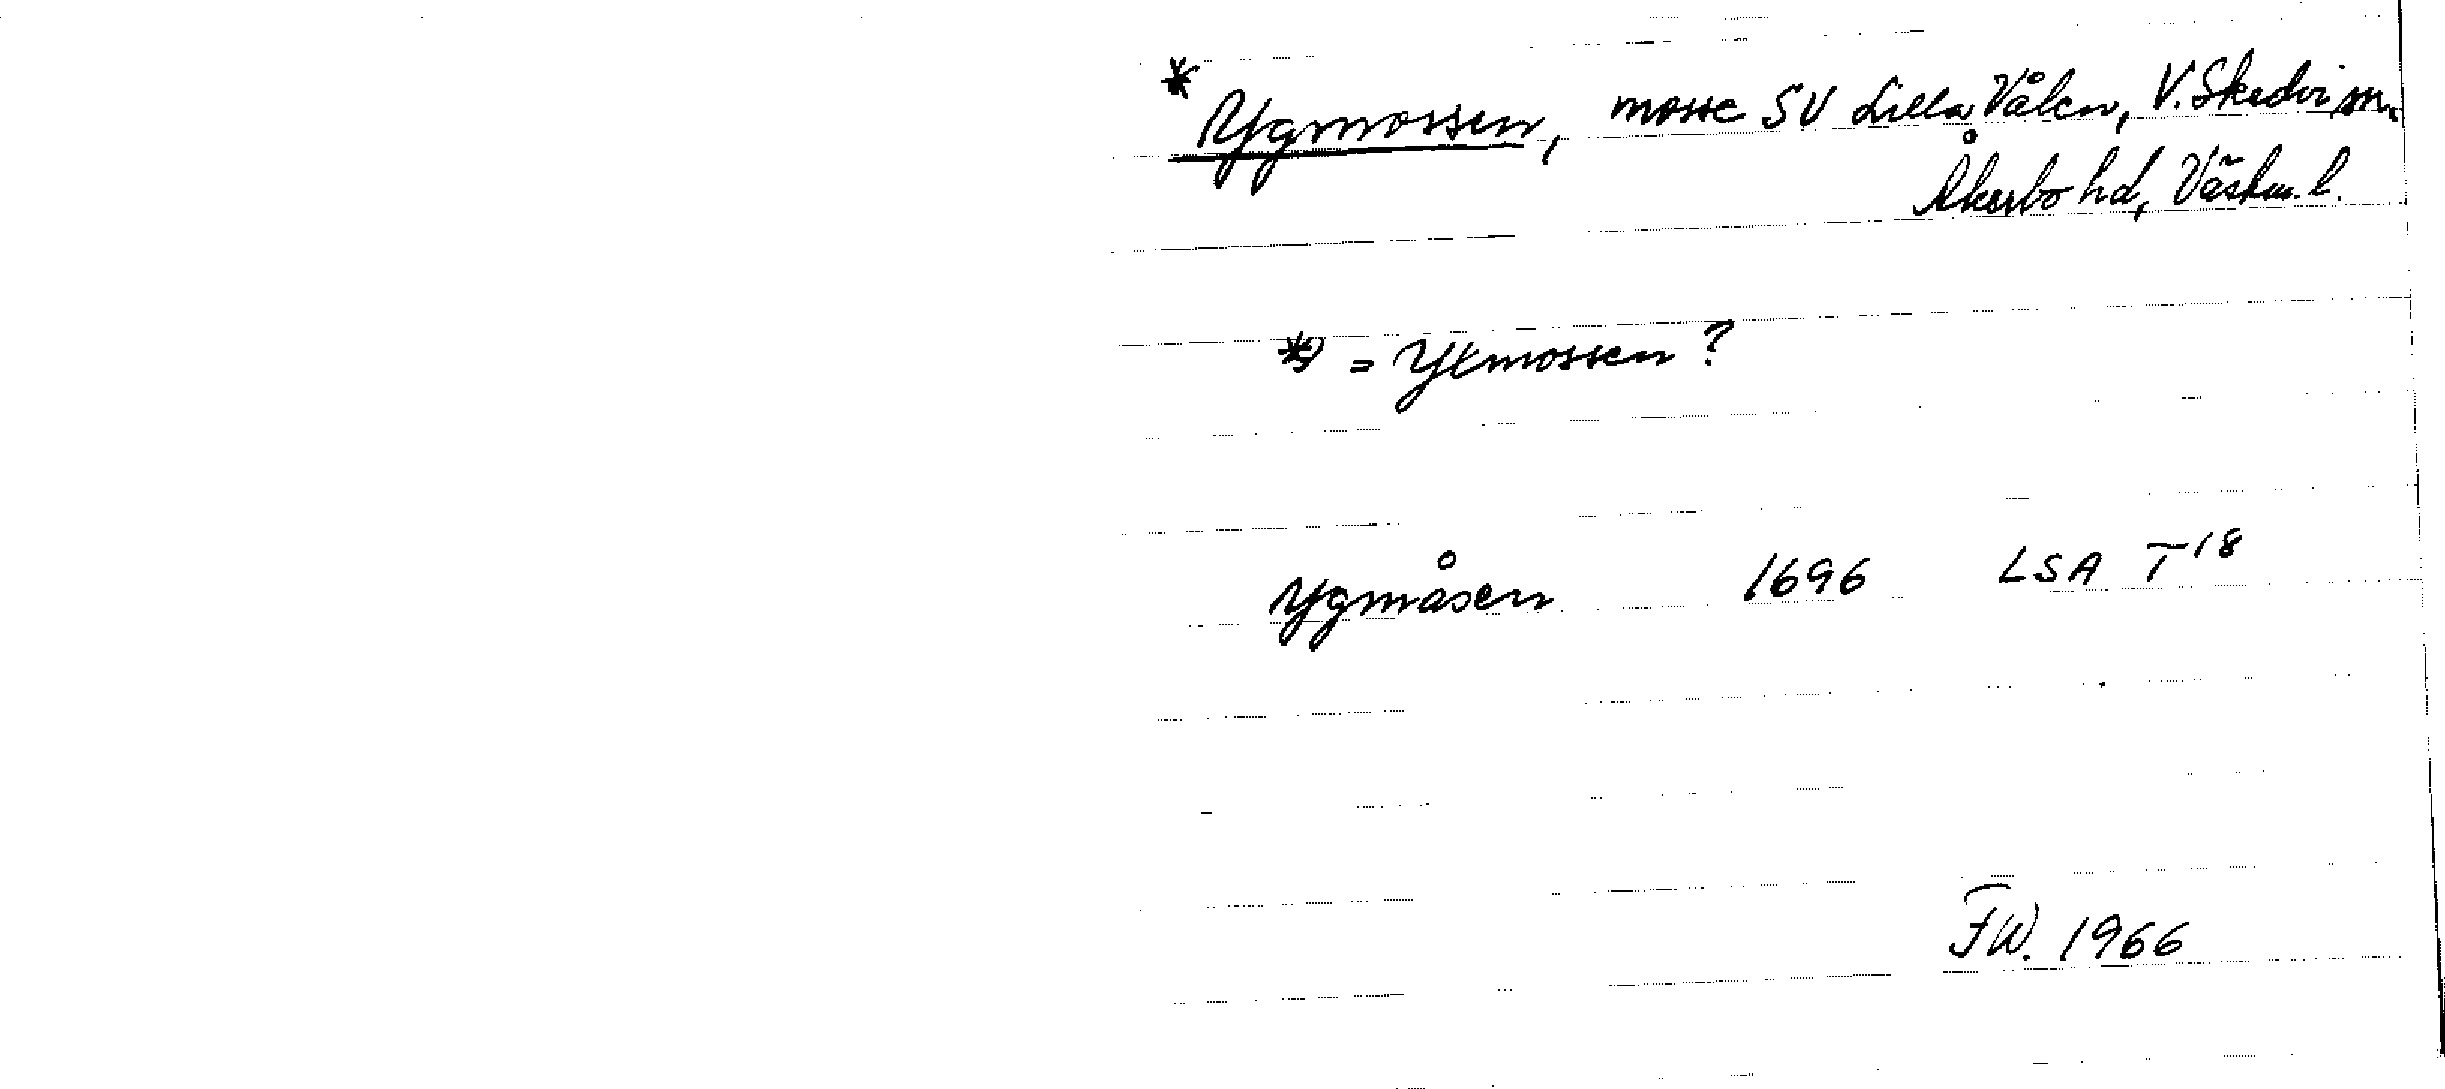 * Ygmossen, mosse SV Lilla Vålen, V. Skedvi sn.
Åkerbo hd, Västm. l.
*) = Ytmossen?
Ygmåsen 1696 LSA T18
FW. 1966